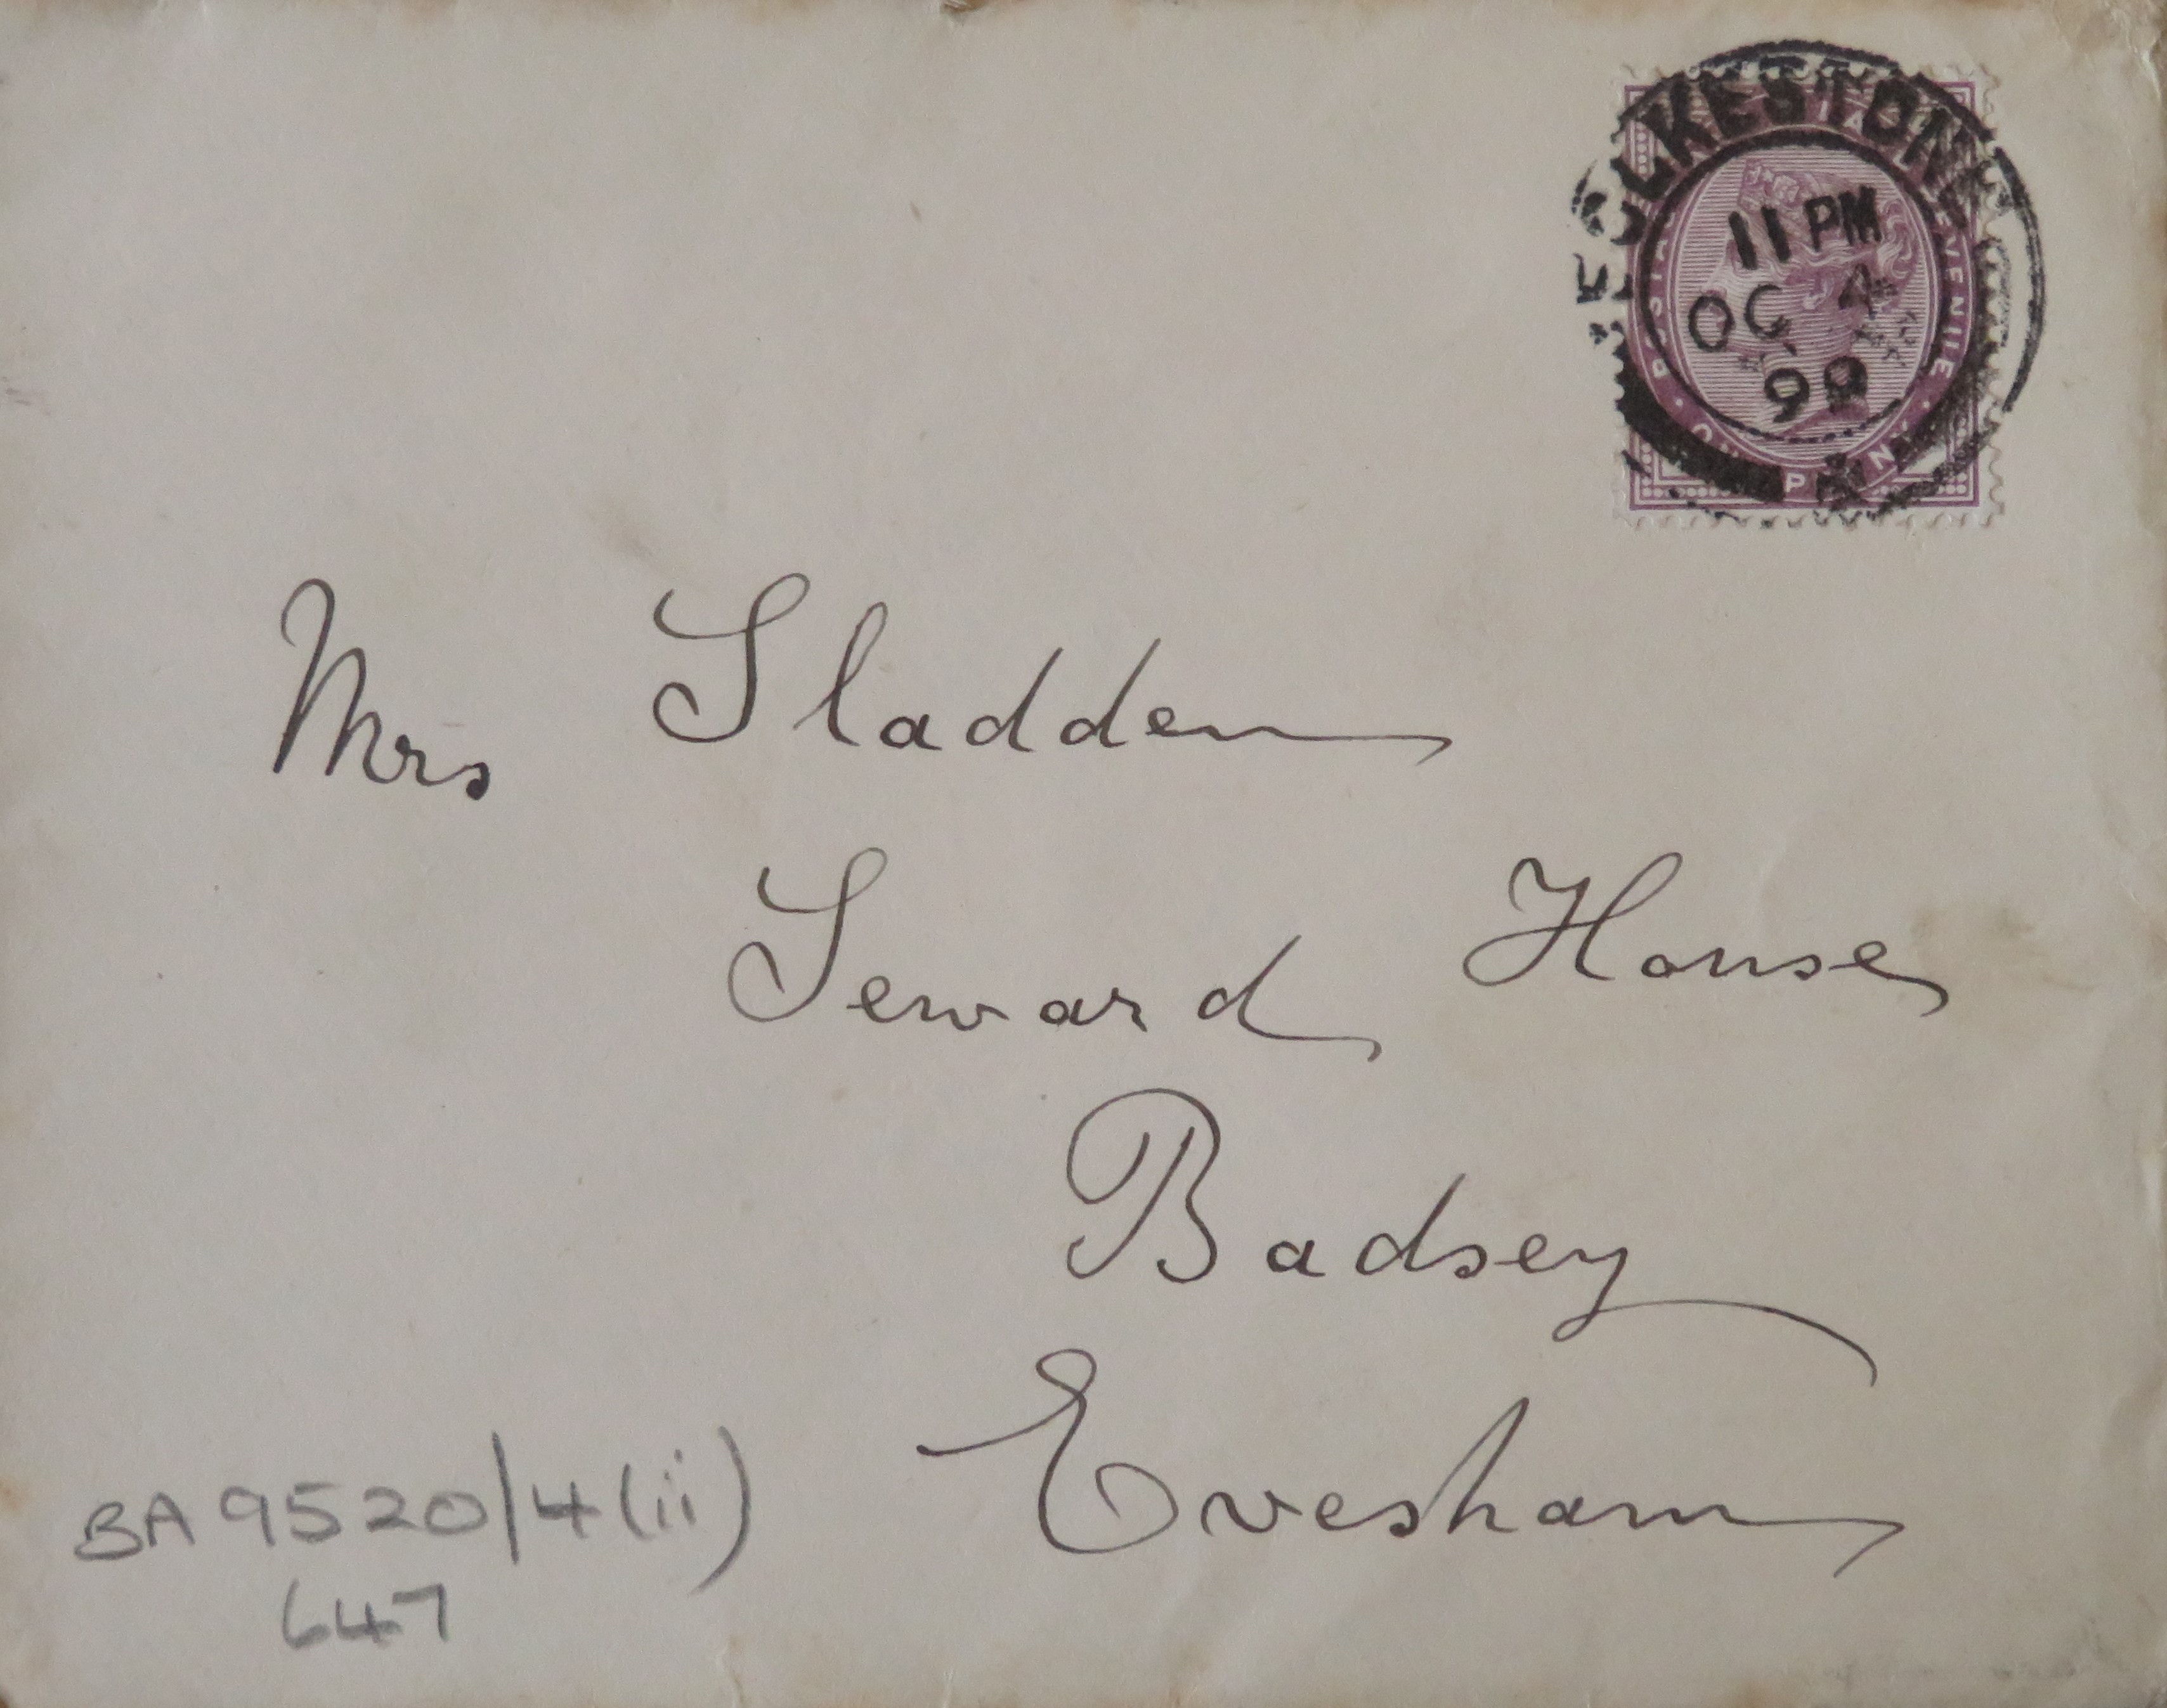 FOLKESTONE
11 PM
OC 4
99
Mrs Sladden
Seward House
Badsey
Evesham
BA 9520/4(ii)
647